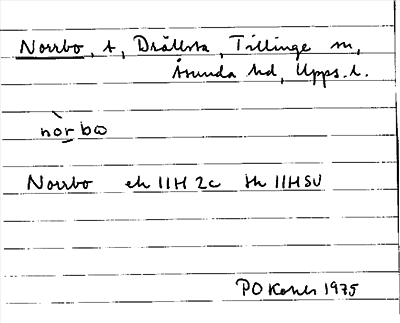 Norrbo, t, Drällsta, Tillinge sn,
Åsunda hd, Upps. l.
nòrbω
Norrbo ek 11H 2c sk 11HSV
PO 1975